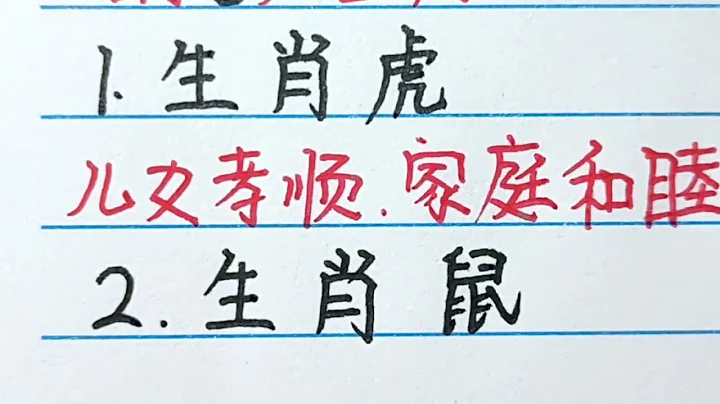 1. 生肖虎
儿女孝顺.家庭和睦
2. 生肖鼠